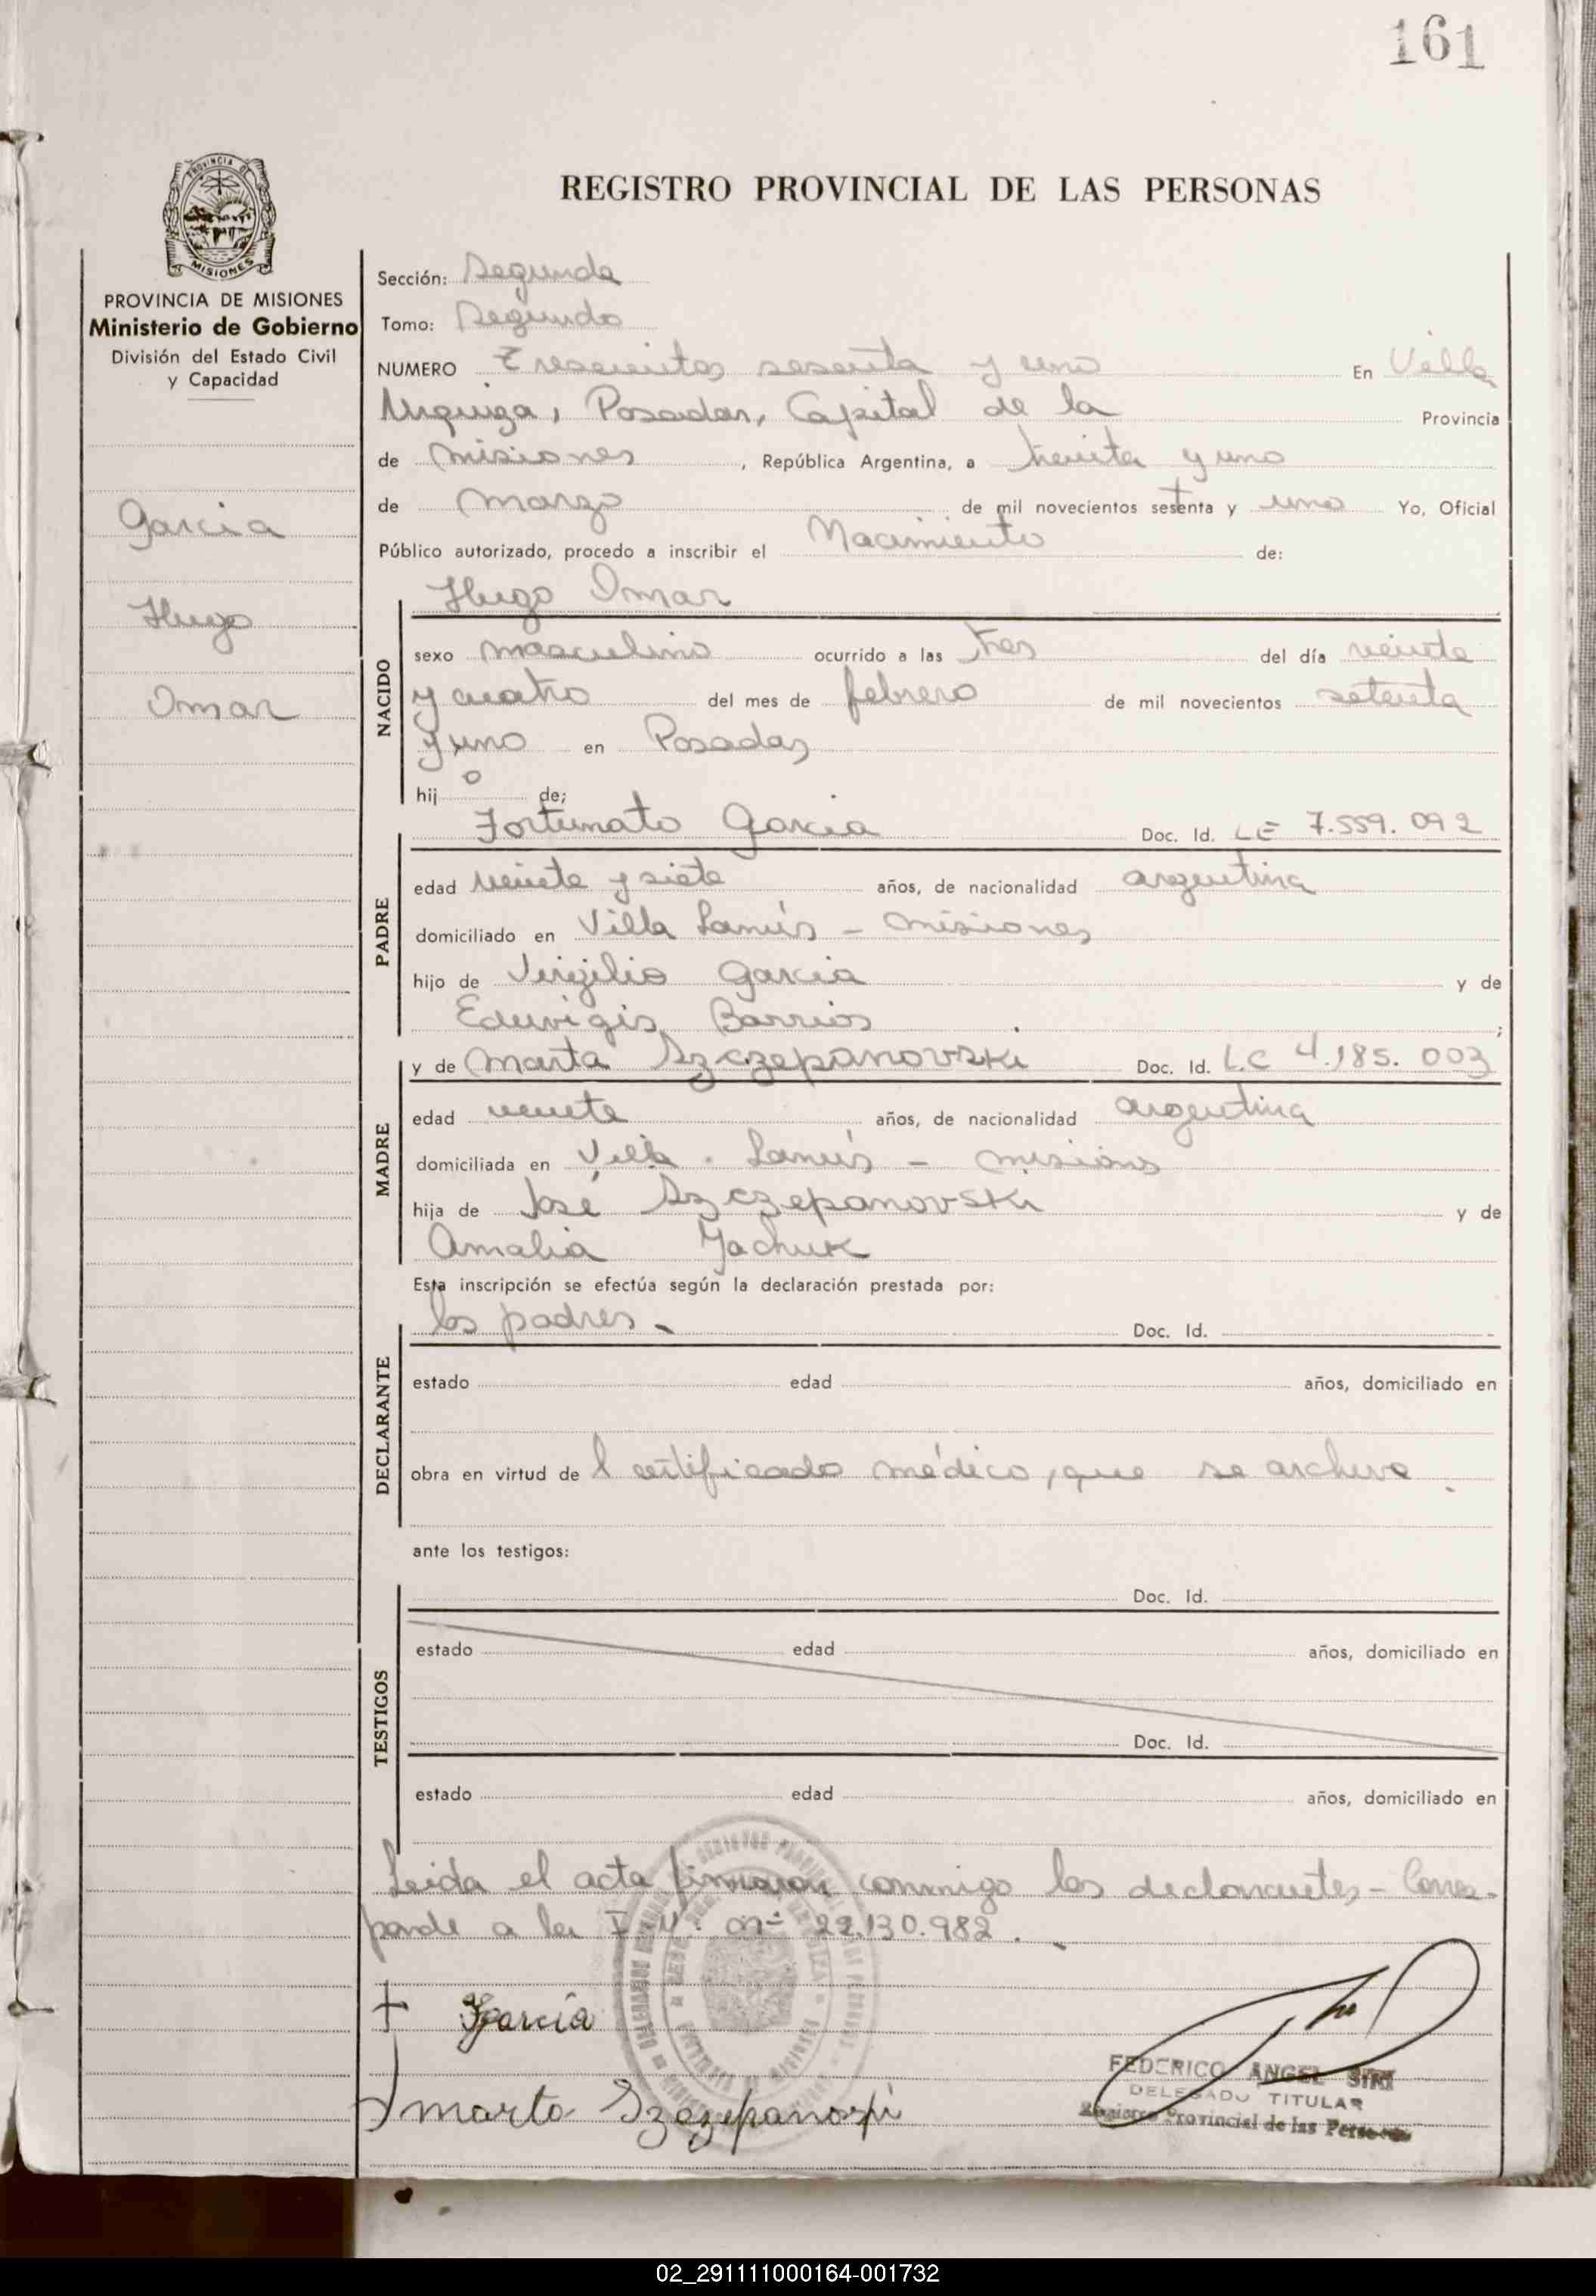 161
PROVINCIA DE MISIONES
REGISTRO PROVINCIAL DE LAS PERSONAS
PROVINCIA DE MISIONES
Ministerio de Gobierno
División del Estado Civil
y Capacidad
Garcia
Hugo
Omar
Sección: Segunda
Tomo: Segundo
NUMERO Trescientos sesenta y uno En Villa
Urquiza, Posadas, Capital de la Provincia
de Misiones, República Argentina, a treinta y uno
de marzo de mil novecientos setenta y uno Yo, Oficial
Público autorizado, procedo a inscribir el Nacimiento de:
Hugo Omar
NACIDO
sexo masculino ocurrido a las tres del día veinte
y cuatro del mes de febrero de mil novecientos setenta
y uno en Posadas
hijo de;
Fortunato Garcia Doc. Id. LE 7.559.092
PADRE
edad veinte y siete años, de nacionalidad argentina
domiciliado en Villa Lanús - Misiones
hijo de Virgilio Garcia y de
Eduvigis Barrios ;
y de Marta Szczepanovski Doc. Id. L.C 4.185.003
MADRE
edad veinte años, de nacionalidad argentina
domiciliada en Villa Lanús - Misiones
hija de José Szczepanovski y de
Amalia Jachuk
Esta inscripción se efectúa según la declaración prestada por:
los padres. Doc. Id.
DECLARANTE
estado edad años, domiciliado en
obra en virtud del certificado médico, que se archiva.
ante los testigos:
Doc. Id.
TESTIGOS
estado edad años, domiciliado en
Doc. Id.
estado edad años, domiciliado en
Leida el acta firmaron conmigo los declarantes - Corres-
ponde a la nº 22.130.982.
FGarcía
Marta
FEDERICO ANGEL SIRI
DELEGADO TITULAR
Registro Provincial de las Personas
02_291111000164-001732